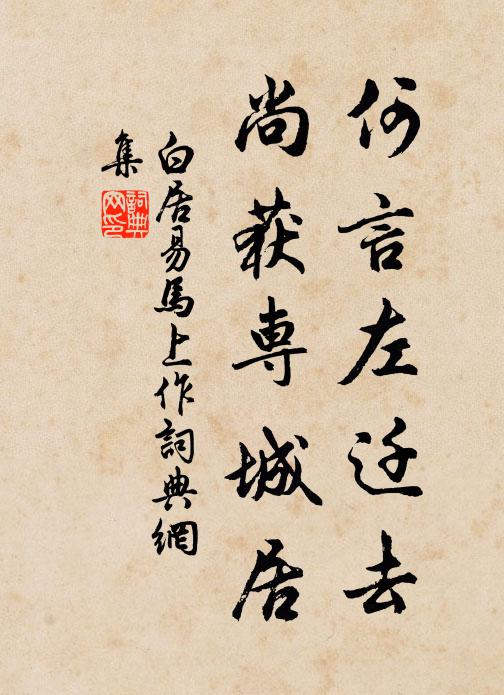 何言左迁去
尚获専城居
白居易馬上作詞典網
集
詞典
网印